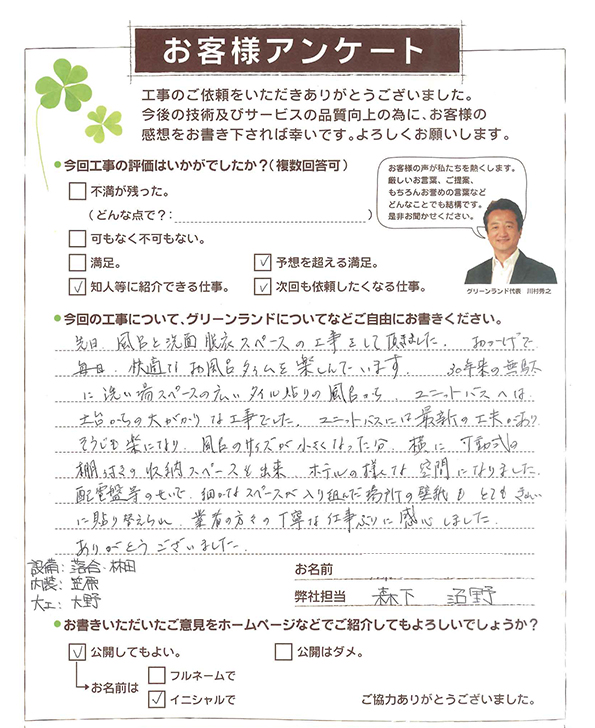 お客様アンケート
工事のご依頼をいただきありがとうございました。
今後の技術及びサービスの品質向上の為に、お客様の
感想をお書き下されば幸いです。よろしくお願いします。
●今回工事の評価はいかがでしたか?(複数回答可)
お客様の声が私たちを熱くします。
厳しいお言葉、ご提案、
もちろんお誉めの言葉など
どんなことでも結構です。
是非お聞かせください。
グリーンランド代表 川村秀之
□不満が残った。
(どんな点で?: )
□可もなく不可もない。
□満足。 ☑予想を超える満足。
☑知人等に紹介できる仕事。 ☑次回も依頼したくなる仕事。
●今回の工事について、グリーンランドについてなどご自由にお書きください。
先日、風呂と洗面脱衣スペースの工事をして頂きました。おかげで
毎日、快適なお風呂タイムを楽しんでいます。30年来の無駄
に洗い場スペースの広いタイル貼りの風呂から、ユニットバスへは
土台からの大がかりな工事でした。ユニットバスには最新の工夫があり
そうじも楽になり、風呂のサイズが小さくなった分、横に可動式の
棚付きの収納スペースも出来、ホテルの様な空間になりました。
配電盤等のせいで、細かなスペースが入り組んだ場所の壁紙もとてもきれい
に貼り替えられ、業者の方々の丁寧な仕事ぶりに感心しました。
ありがとうございました。
設備:落合・林田
内装:笠原
大工:大野
お名前
弊社担当 森下 沼野
●お書きいただいたご意見をホームページなどでご紹介してもよろしいでしょうか?
☑公開してもよい。 □公開はダメ。
お名前は □フルネームで
☑イニシャルで
ご協力ありがとうございました。